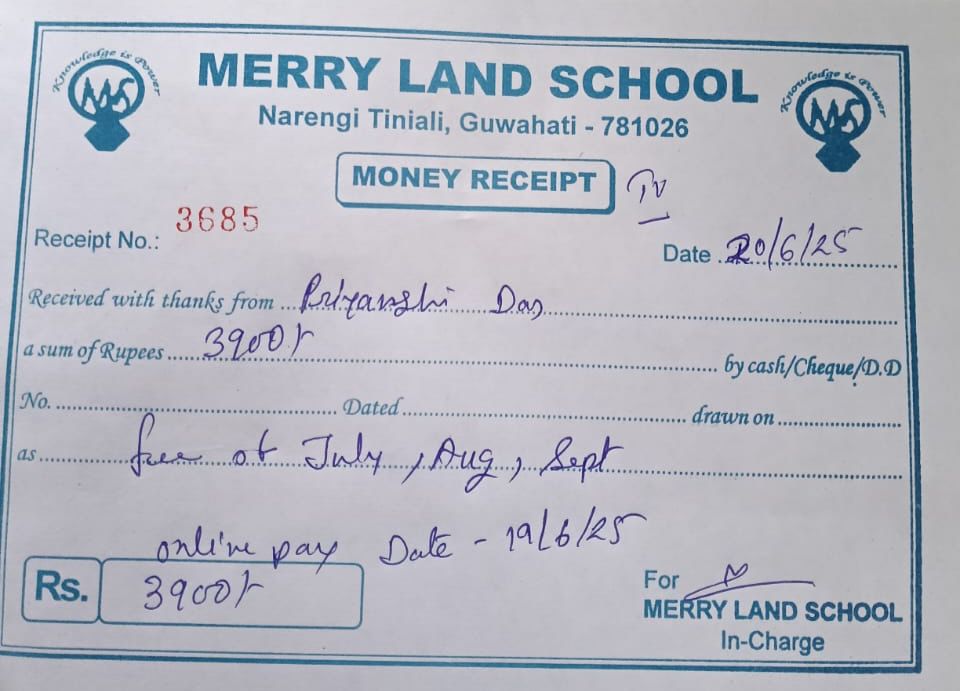 Knowledge is Power
MS
MERRY LAND SCHOOL
Knowledge is Power
MS
Narengi Tiniali, Guwahati - 781026
MONEY RECEIPT IV
Receipt No.: 3685
Date 20/6/25
Received with thanks from Priyanshi Das
a sum of Rupees 3900/- by cash/Cheque/D.D
No. Dated drawn on
as fee of July, Aug, Sept
online pay Date - 19/6/25
Rs. 3900/-
For
MERRY LAND SCHOOL
In-Charge